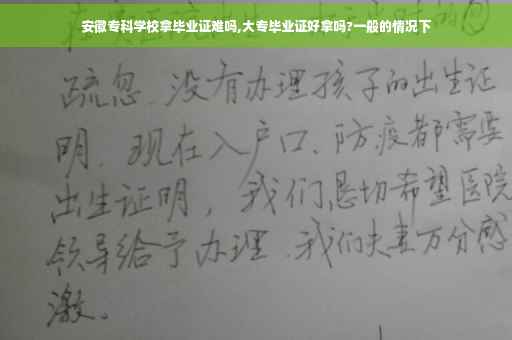 安徽专科学校拿毕业证难吗,大专毕业证好拿吗?一般的情况下
疏忽、没有办理孩子的出生证
明、现在入户口、防疫都需要
出生证明,我们恳切希望医院
领导给予办理、我们夫妻万分感
激。